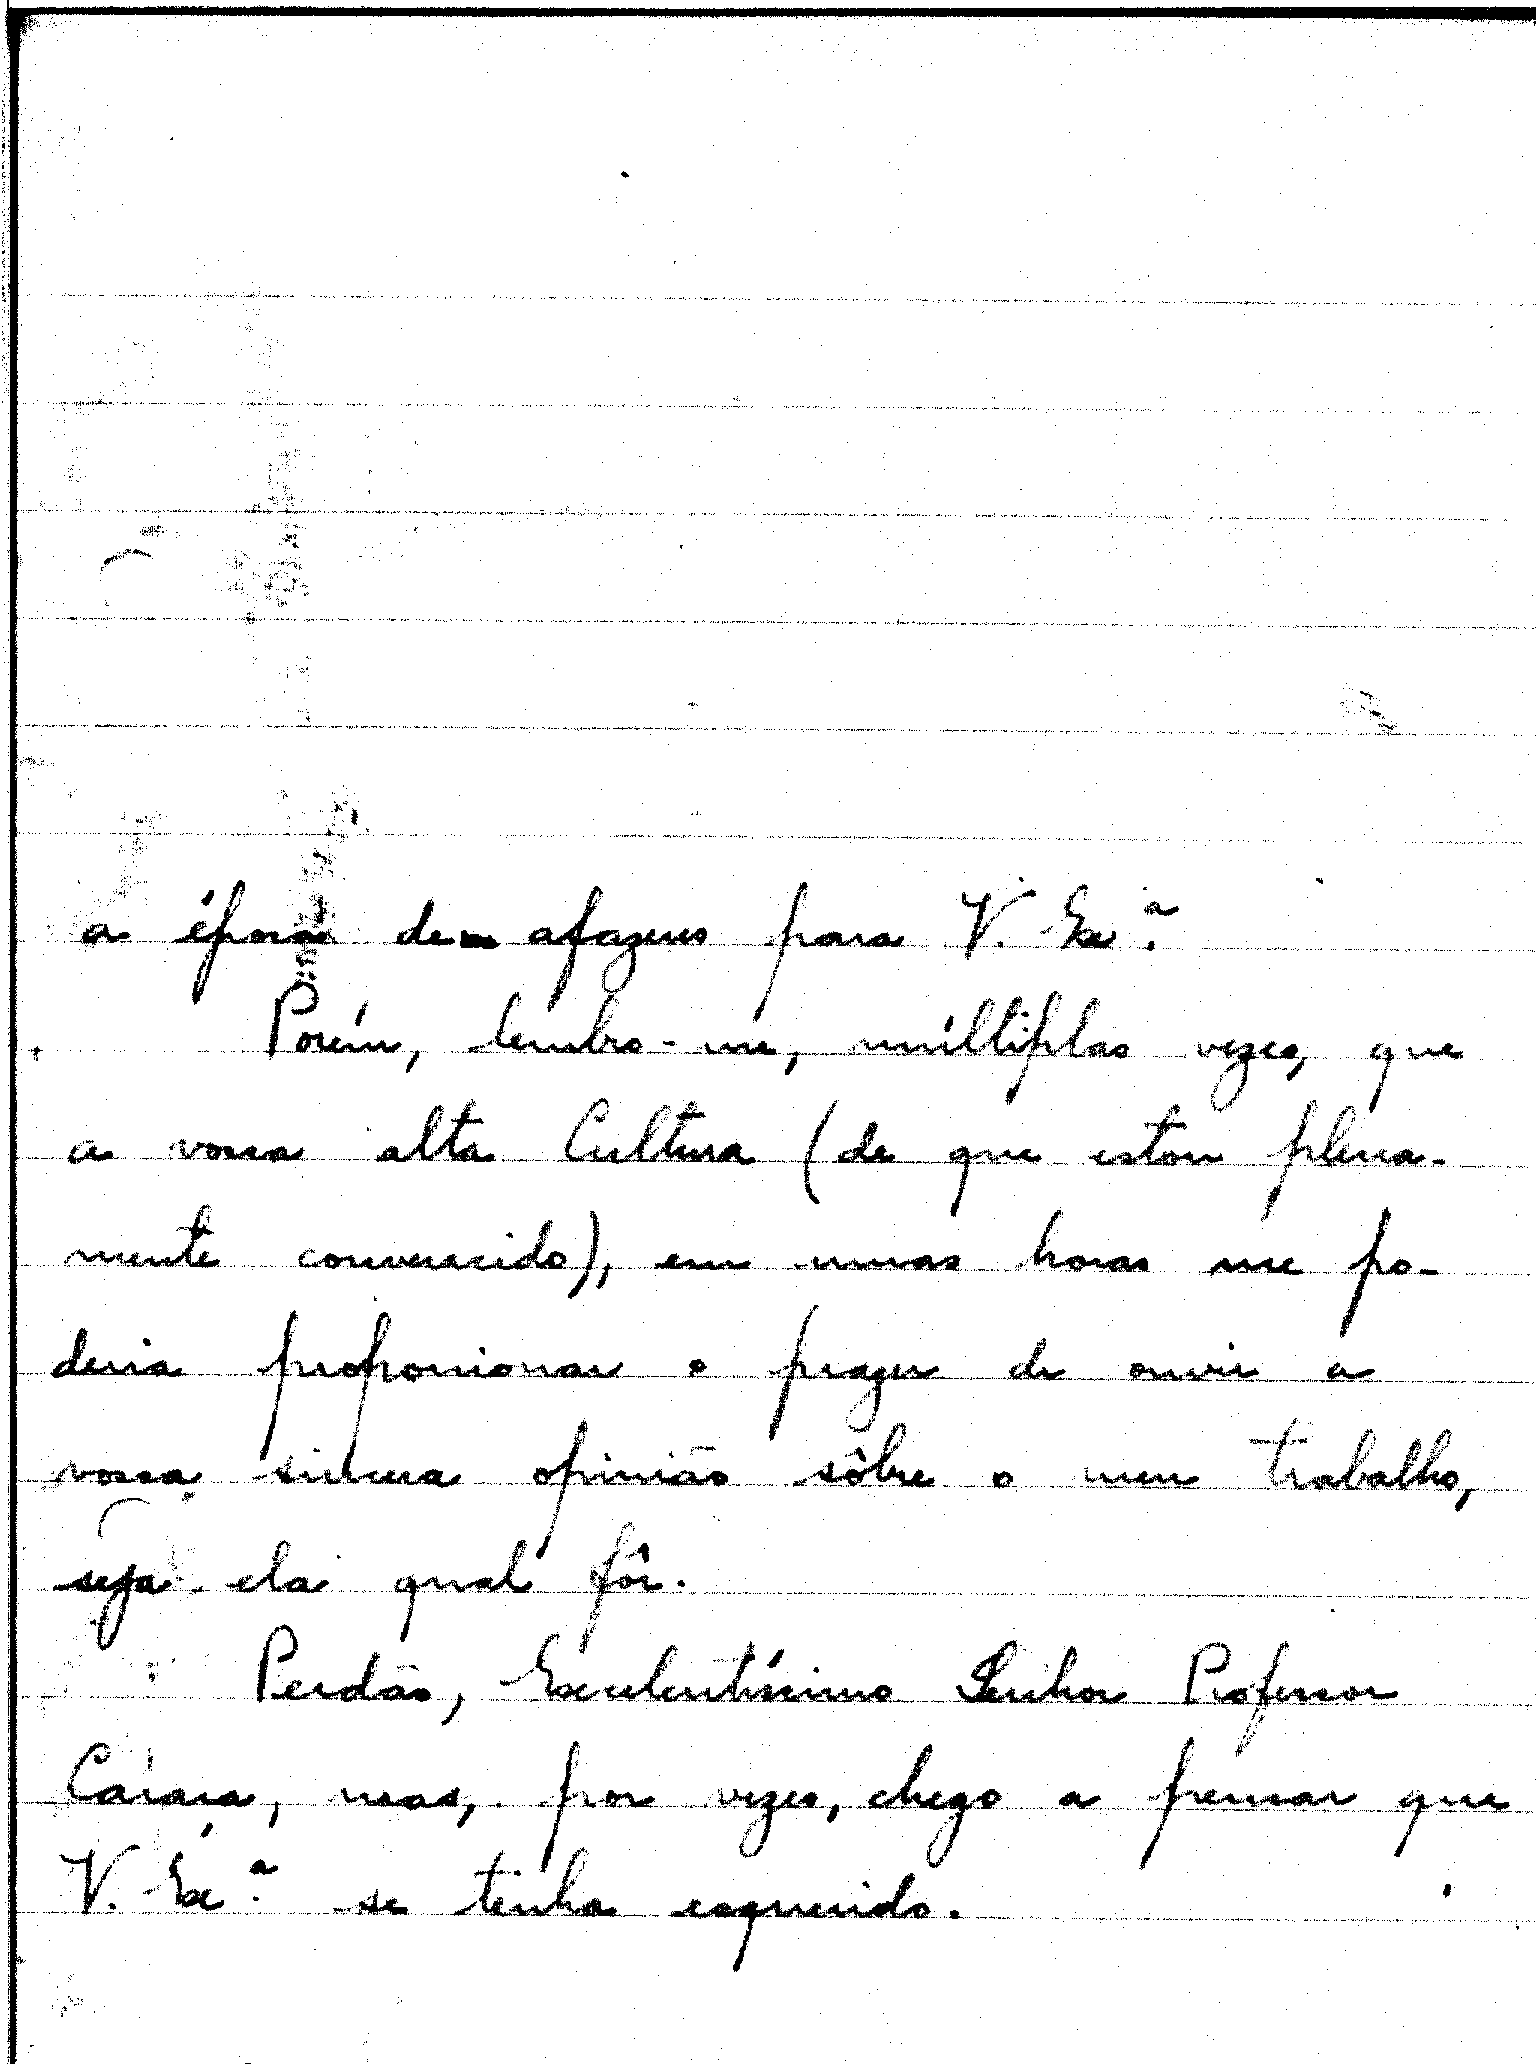 a época de afazeres para V. Ex.ª
Porém, lembro-me, múltiplas vezes, que
a vossa alta Cultura (de que estou plena-
mente convencido), em umas horas me po-
deria proporcionar o prazer de ouvir a
vossa sincera opinião sôbre o meu trabalho,
seja ela qual fôr.
Perdão, Excelentíssimo Senhor Professor
mas, por vezes, chego a pensar que
V. Ex.ª se tenha esquecido.